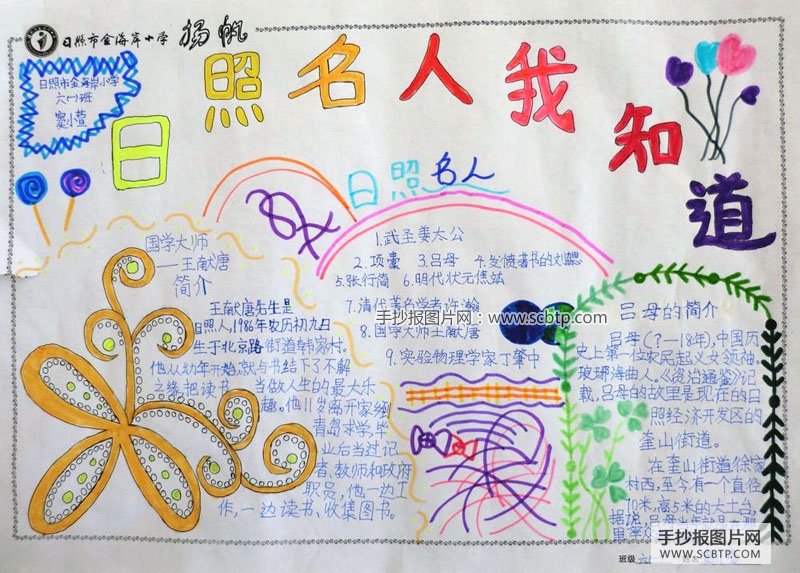 日照市金海岸小学 扬帆
日照市金海岸小学
六(一)班
窦小萱
日照名人我知道
日照名人
国学大师
——王献唐
简介
王献唐先生是
日照人,1986年农历初九日
生于北京路街道韩家村。
他从幼年开始就与书结下了不解
之缘把读书 当做人生的最大乐
趣。他11岁离开家乡到
青岛求学,毕
业后当过记
者、教师和政府
职员,他一边工
作,一边读书、收集图书。
1.武圣姜太公
2.项橐 3.吕母 4.发愤著书的刘勰
5.张行简 6.明代状元焦竑
7.清代著名学者许瀚
8.国学大师王献唐
9.实验物理学家丁肇中
手抄报图片网:www.scbtp.com
吕母的简介
吕母(?—18年),中国历
史上第一位农民起义女领袖。
琅琊海曲人。《资治通鉴》记
载,吕母的故里是现在的日
照经济开发区的
奎山街道。
在奎山街道徐家
村西,至今,有一个直径
10米,高5米的大土台,
据说,吕母当年就是在那
里
班级 六
手抄报图片网
WWW.SCBTP.COM